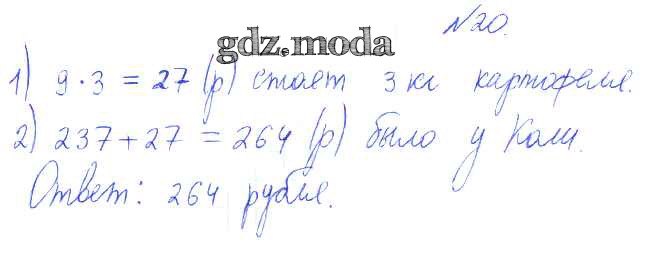 №20.
gdz.moda
1) 9·3 = 27 (р) стоят 3 кг картофеля.
2) 237+27 = 264 (р) было у Коли.
Ответ: 264 рубля.